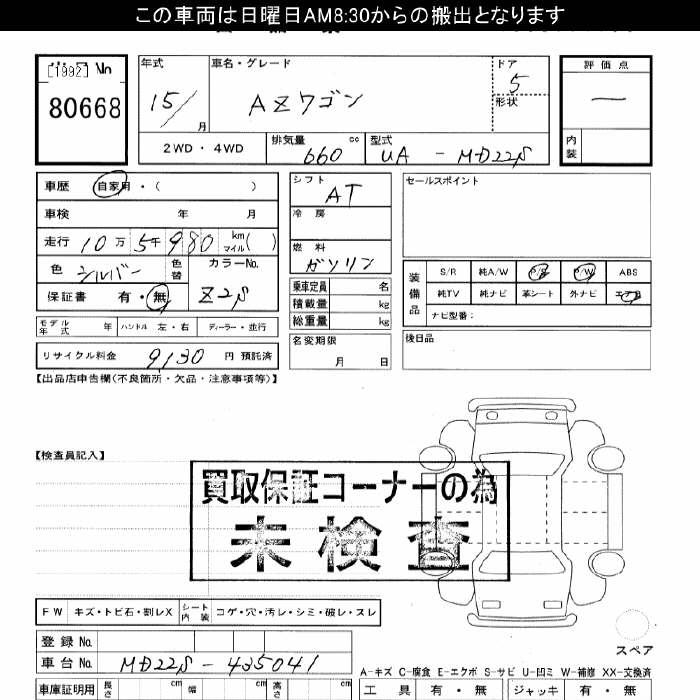 この車両は日曜日AM8:30からの搬出となります
[1992] No
80668
年式 車名・グレード ドア 評価点
15/ 月 AZワゴン 5 —
形状
2WD・4WD 排気量 660 cc 型式 UA - MD22S 内装
車歴 自家用・( )
車検 年 月
走行 10万 5千 980 km マイル( )
色 シルバー 色替 カラーNo.
保証書 有・無 Z2S
モデル年式 年 ハンドル 左・右 ディーラー・並行
リサイクル料金 9130 円 預託済
シフト AT
冷房
燃料 ガソリン
乗車定員 名
積載量 kg
総重量 kg
名変期限 月 日
セールスポイント
装備品 S/R 純A/W P/S P/W ABS
純TV 純ナビ 革シート 外ナビ エアB
ナビ型番:
後日品
【出品店申告欄(不良箇所・欠品・注意事項等)】
【検査員記入】
買取保証コーナーの為
未検査
FW キズ・トビ石・割レX シート内装 コゲ・穴・汚レ・シミ・破レ・スレ
登録No.
車台No. MD22S-435041
車庫証明用 長さ cm 幅 cm 高さ cm
スペア
A-キズ C-腐食 E-エクボ S-サビ U-凹ミ W-補修 XX-交換済
工具 有・無 ジャッキ 有・無